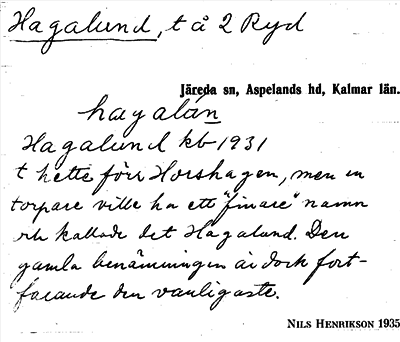 Hagalund, t å 2 Ryd
Järeda sn, Aspelands hd, Kalmar län.
hagalán
Hagalund kb 1931
t hette förr Horshagen, men en
torpare ville ha ett "finare" namn
och kallade det Hagalund. Den
gamla benämningen är dock fort-
farande den vanligaste.
NILS HENRIKSON 1935